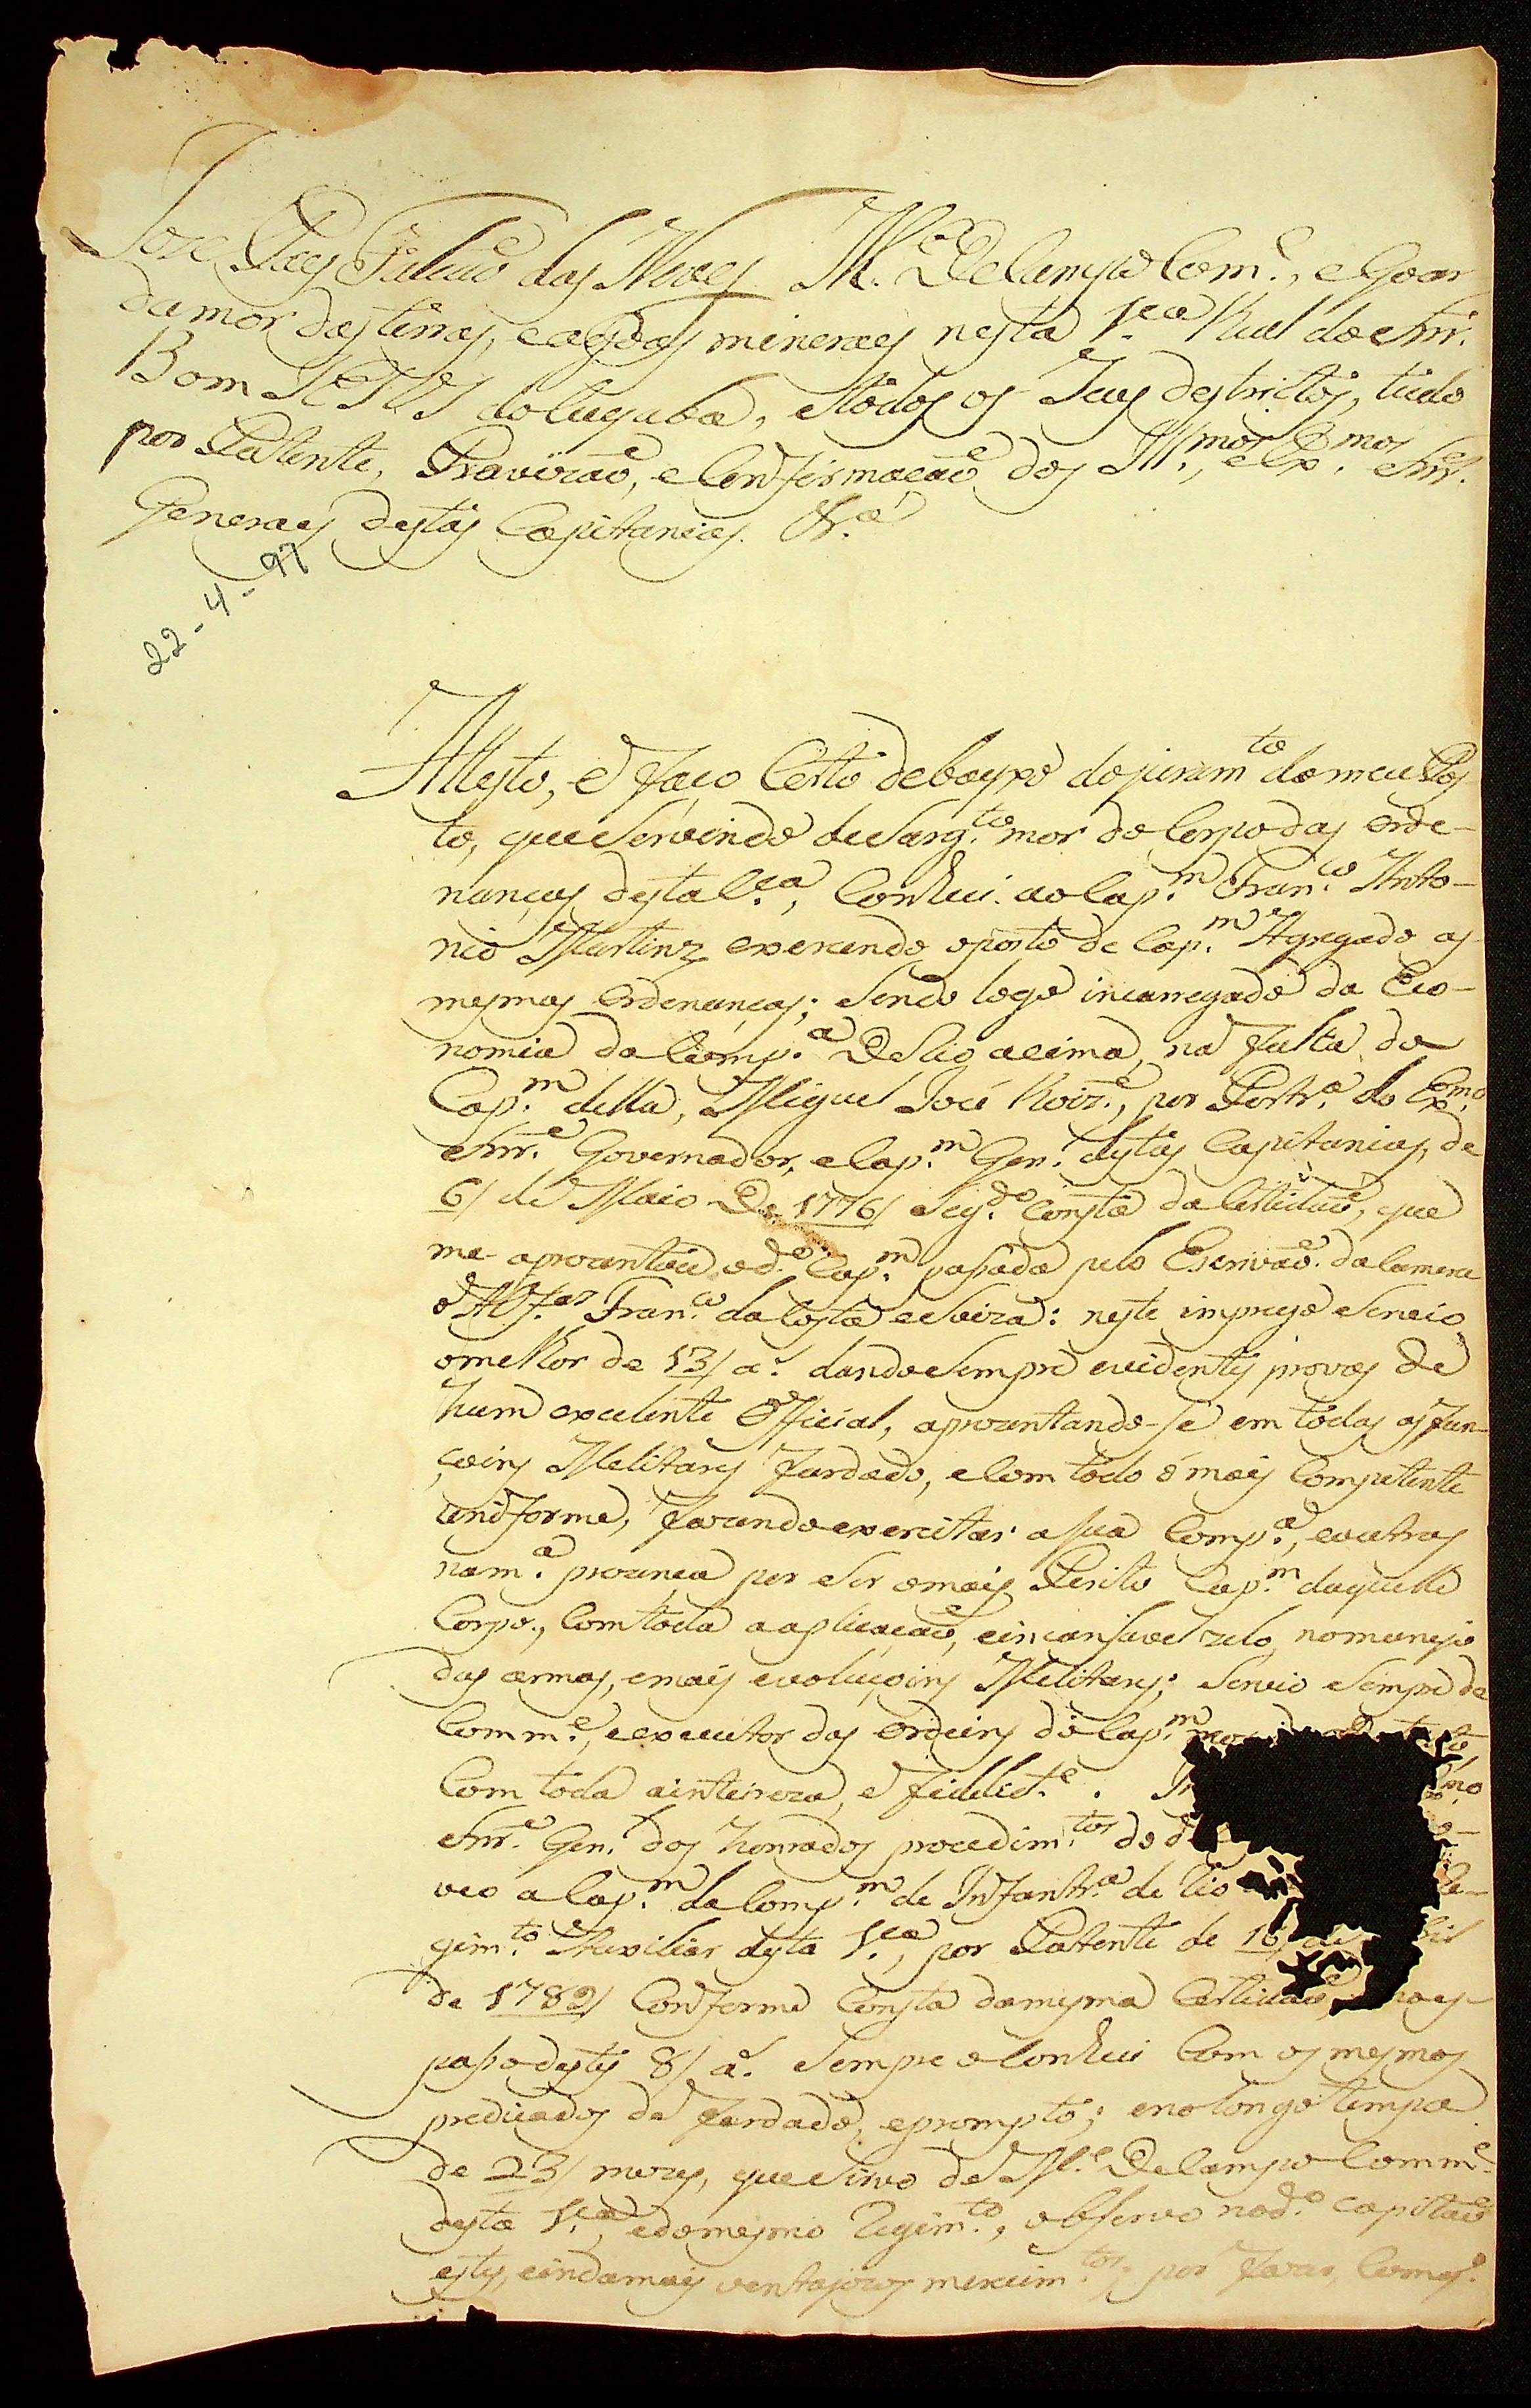 Joze Paes Falcaõ das Neves M.e De Campo Com.e, e Goar
da mor das terras, e agoas mineraes nesta V.ca Real do Snr.
Bom JESUS do Cuyaba, e todos os Seus destrictos, tudo
por Patente, Provizaõ, e Confirmaçaõ dos Ill.mos, e Ex.mos Snr.es
Generaes destas Capitanias. &.a
22-4-97
Attesto, e faço Certo debayxo do juram.to do meu Pos
to, que Servindo de Sarg.to mor do Corpo das Orde-
nanças desta V.ca, Conheci ao Cap.m Fran.co Anto-
nio Martinz exercendo o posto de Cap.m Agregado as
mesmas Ordenanças; Sendo logo incarregado da Eco-
nomia da Comp.a De Rio acima, na falta do
Cap.m della, Miguel José Roiz.e, por Portr.a do Ex.mo
Snr.e Governador, e Cap.m Gen.l destas Capitanias, de
6/ de Maio De 1776/ Seg.do Consta da Certidaõ, que
me aprezentou o d.o Cap.m pasada pelo Escrivaõ da Camera
o Alf.es Fran.co da Costa e Soiza: neste imprego Servio
o melhor de 13/ a.s dando Sempre evidentes provas de
hum excelente Official, aprezentando-se em todas as fun-
çoins Melitares fardado, e Com todo o mais Competente
uniforme, fazendo exercitar a sua Comp.a, e outras
na m.a prezença por Ser o mais Perito Cap.m daquelle
Corpo, Com toda a aplicaçaõ, e incansavel zelo, no manejo
das armas, e mais evoluçoins Melitares; Servio Sempre de
Comm.e, e executor das Ordeins do Cap.m mor
Com toda a inteireza, e fidelid.e. In mo
Snr.e Gen.l dos honrados procedim.tos do d
veo a Cap.m da Comp.m de Infantr.a de Rio Re-
gim.to Auxiliar desta V.ca, por Patente de 16/ de bril
de 1782/ Conforme Consta da mesma Certidaõ,
paso destes 8/ a.s Sempre o Conheci Com os mesmos
predicados de fardado, e prompto; e no longo tempo
de 23/ mezes, que Sirvo de M.e De Campo Comm.e
desta V.ca, e do mesmo Regim.to, observo no d.o Capitaõ
estes, e inda mais ventajozos merecim.tos, por fazer,